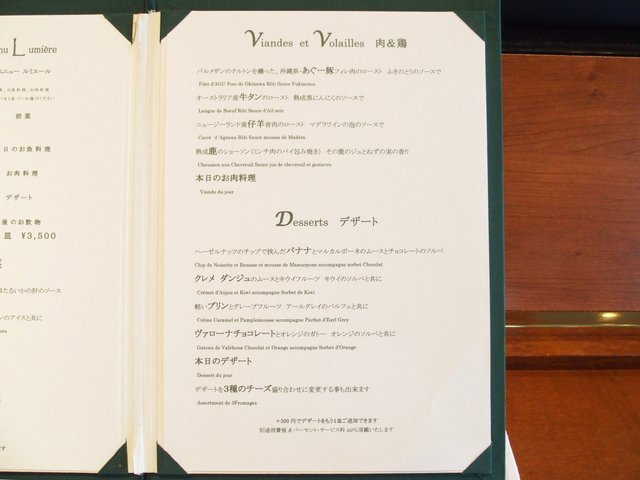 nu Lumière
ニュー ルミエール
前菜
日のお魚料理
お肉料理
デザート
後のお飲物
皿 ¥3,500
菜
ほたるいかの肝のソース
ンのアイスと共に
Viandes et Volailles 肉&鶏
パルメザンのクルトンを纏った、沖縄県・あぐー豚フィレ肉のロースト ふきのとうのソースで
Filet d'AGU Porc de Okinawa Rôti Sauce Fukinotou
オーストラリア産牛タンのロースト 熟成黒にんにくのソースで
Langue de Bœuf Rôti Sauce d'Ail noir
ニュージーランド産仔羊背肉のロースト マデラワインの泡のソースで
Carré d'Agneau Rôti Sauce mousse de Madère
熟成鹿のショーソン(ミンチ肉のパイ包み焼き) その鹿のジュとねずの実の香り
Chausson aux Chevreuil Sauce jus de chevreuil et genievre
本日のお肉料理
Viande du jour
Desserts デザート
ヘーゼルナッツのチップで挟んだバナナとマルカルポーネのムースとチョコレートのソルベ
Chip de Noisette et Banane et mousse de Mascarpone accompagne sorbet Chocolat
クレメ ダンジュのムースとキウイフルーツ キウイのソルベと共に
Crémet d'Anjou et Kiwi accompagne Sorbet de Kiwi
軽いプリンとグレープフルーツ アールグレイのパルフェと共に
Crème Caramel et Pamplemousse accompagne Parfait d'Earl Grey
ヴァローナチョコレートとオレンジのガトー オレンジのソルベと共に
Gateau de Valrhona Chocolat et Orange accompagne Sorbet d'Orange
本日のデザート
Dessert du jour
デザートを3種のチーズ盛り合わせに変更する事も出来ます
Assortment de 3Fromages
+500円でデザートをもう1皿ご追加できます
別途消費税 8 パーセント・サービス料 10%頂戴いたします